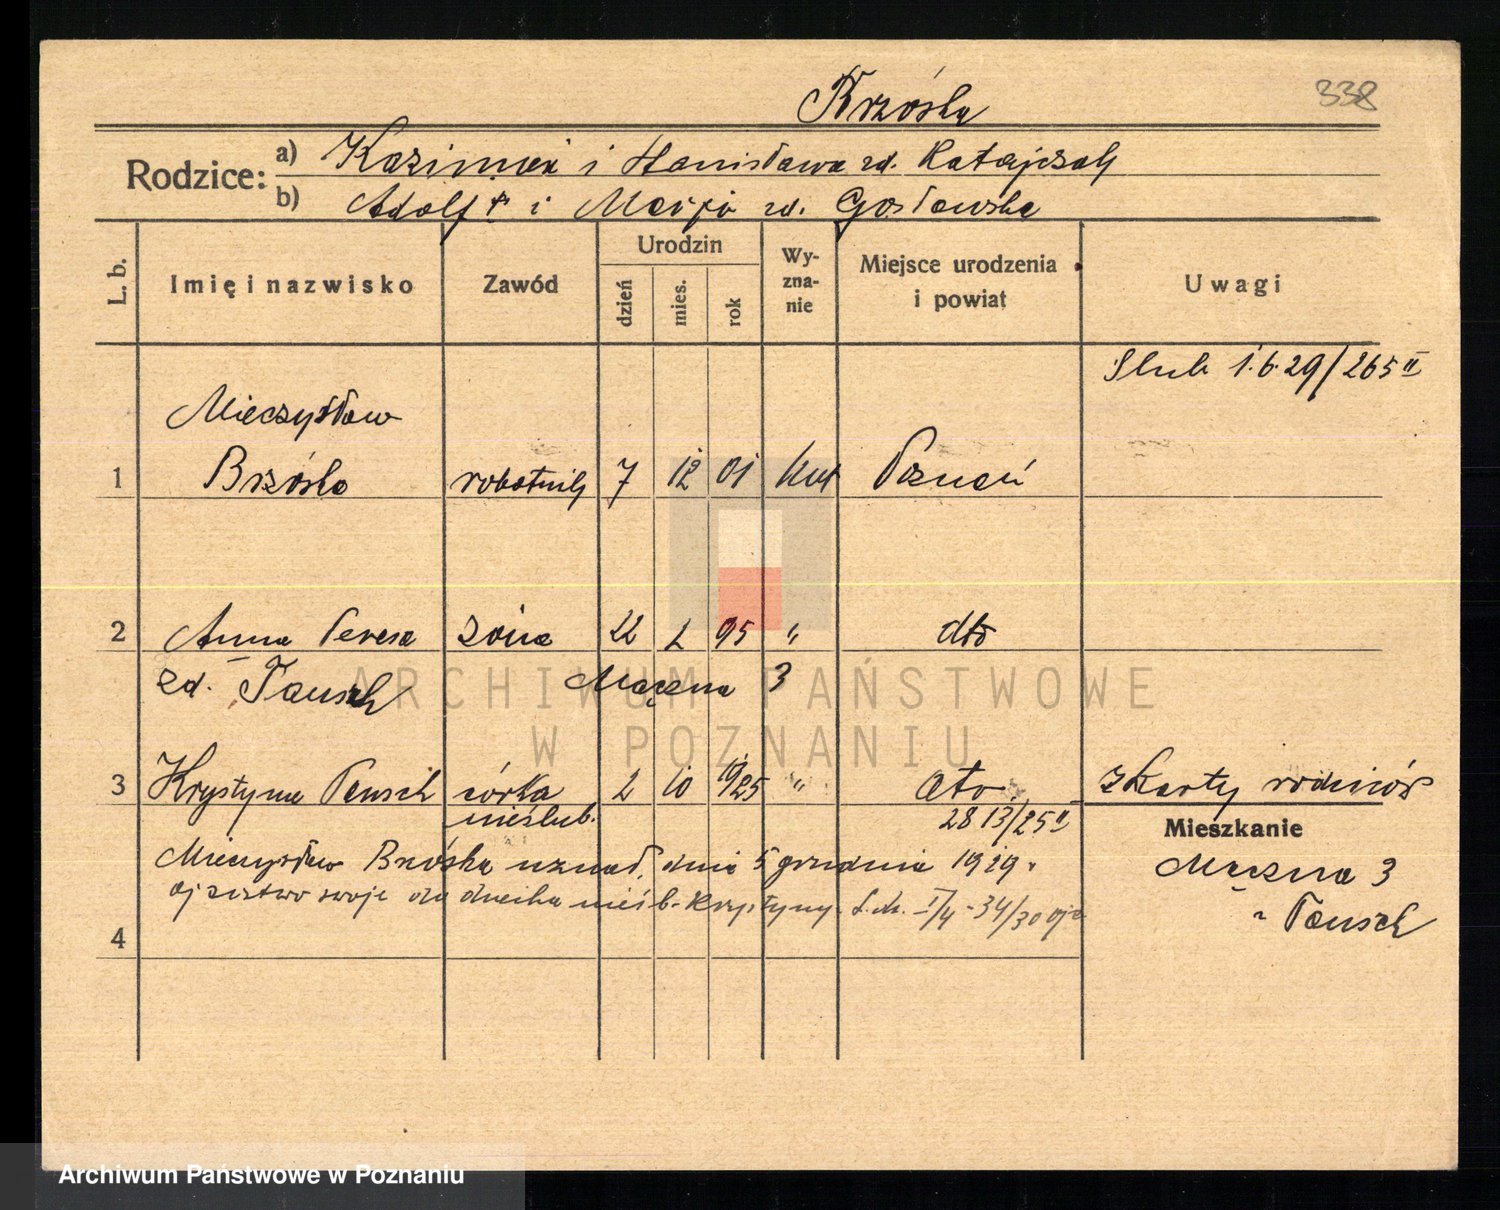 Brzóska
338
Rodzice:
a) Kazimierz i Stanisława zd. Ratajczak
b) Adolf i Marja zd. Gosławska
L. b.
Imię i nazwisko
Zawód
Urodzin
dzień
mies.
rok
Wy-
zna-
nie
Miejsce urodzenia
i powiat
Uwagi
Slub 1.6.29/265 II
Mieczysław
1 Brzóska robotnik 7 12 01 kat Poznań
2 Anna Teresa żona 22 2 05 " dto
zd. Pausch Mączna 3
3 Krystyna Pausch córka 2 10 1925 " dto z karty rodziców
nieślub. 2813/25 II
Mieszkanie
Mieczysław Brzóska uznał dnia 5 grudnia 1929 r
Mączna 3
ojcostwo swoje dla dziecka nieślb. Krystyny. I/4-34/30
Pausch
4
ARCHIWUM PAŃSTWOWE
W POZNANIU
Archiwum Państwowe w Poznaniu